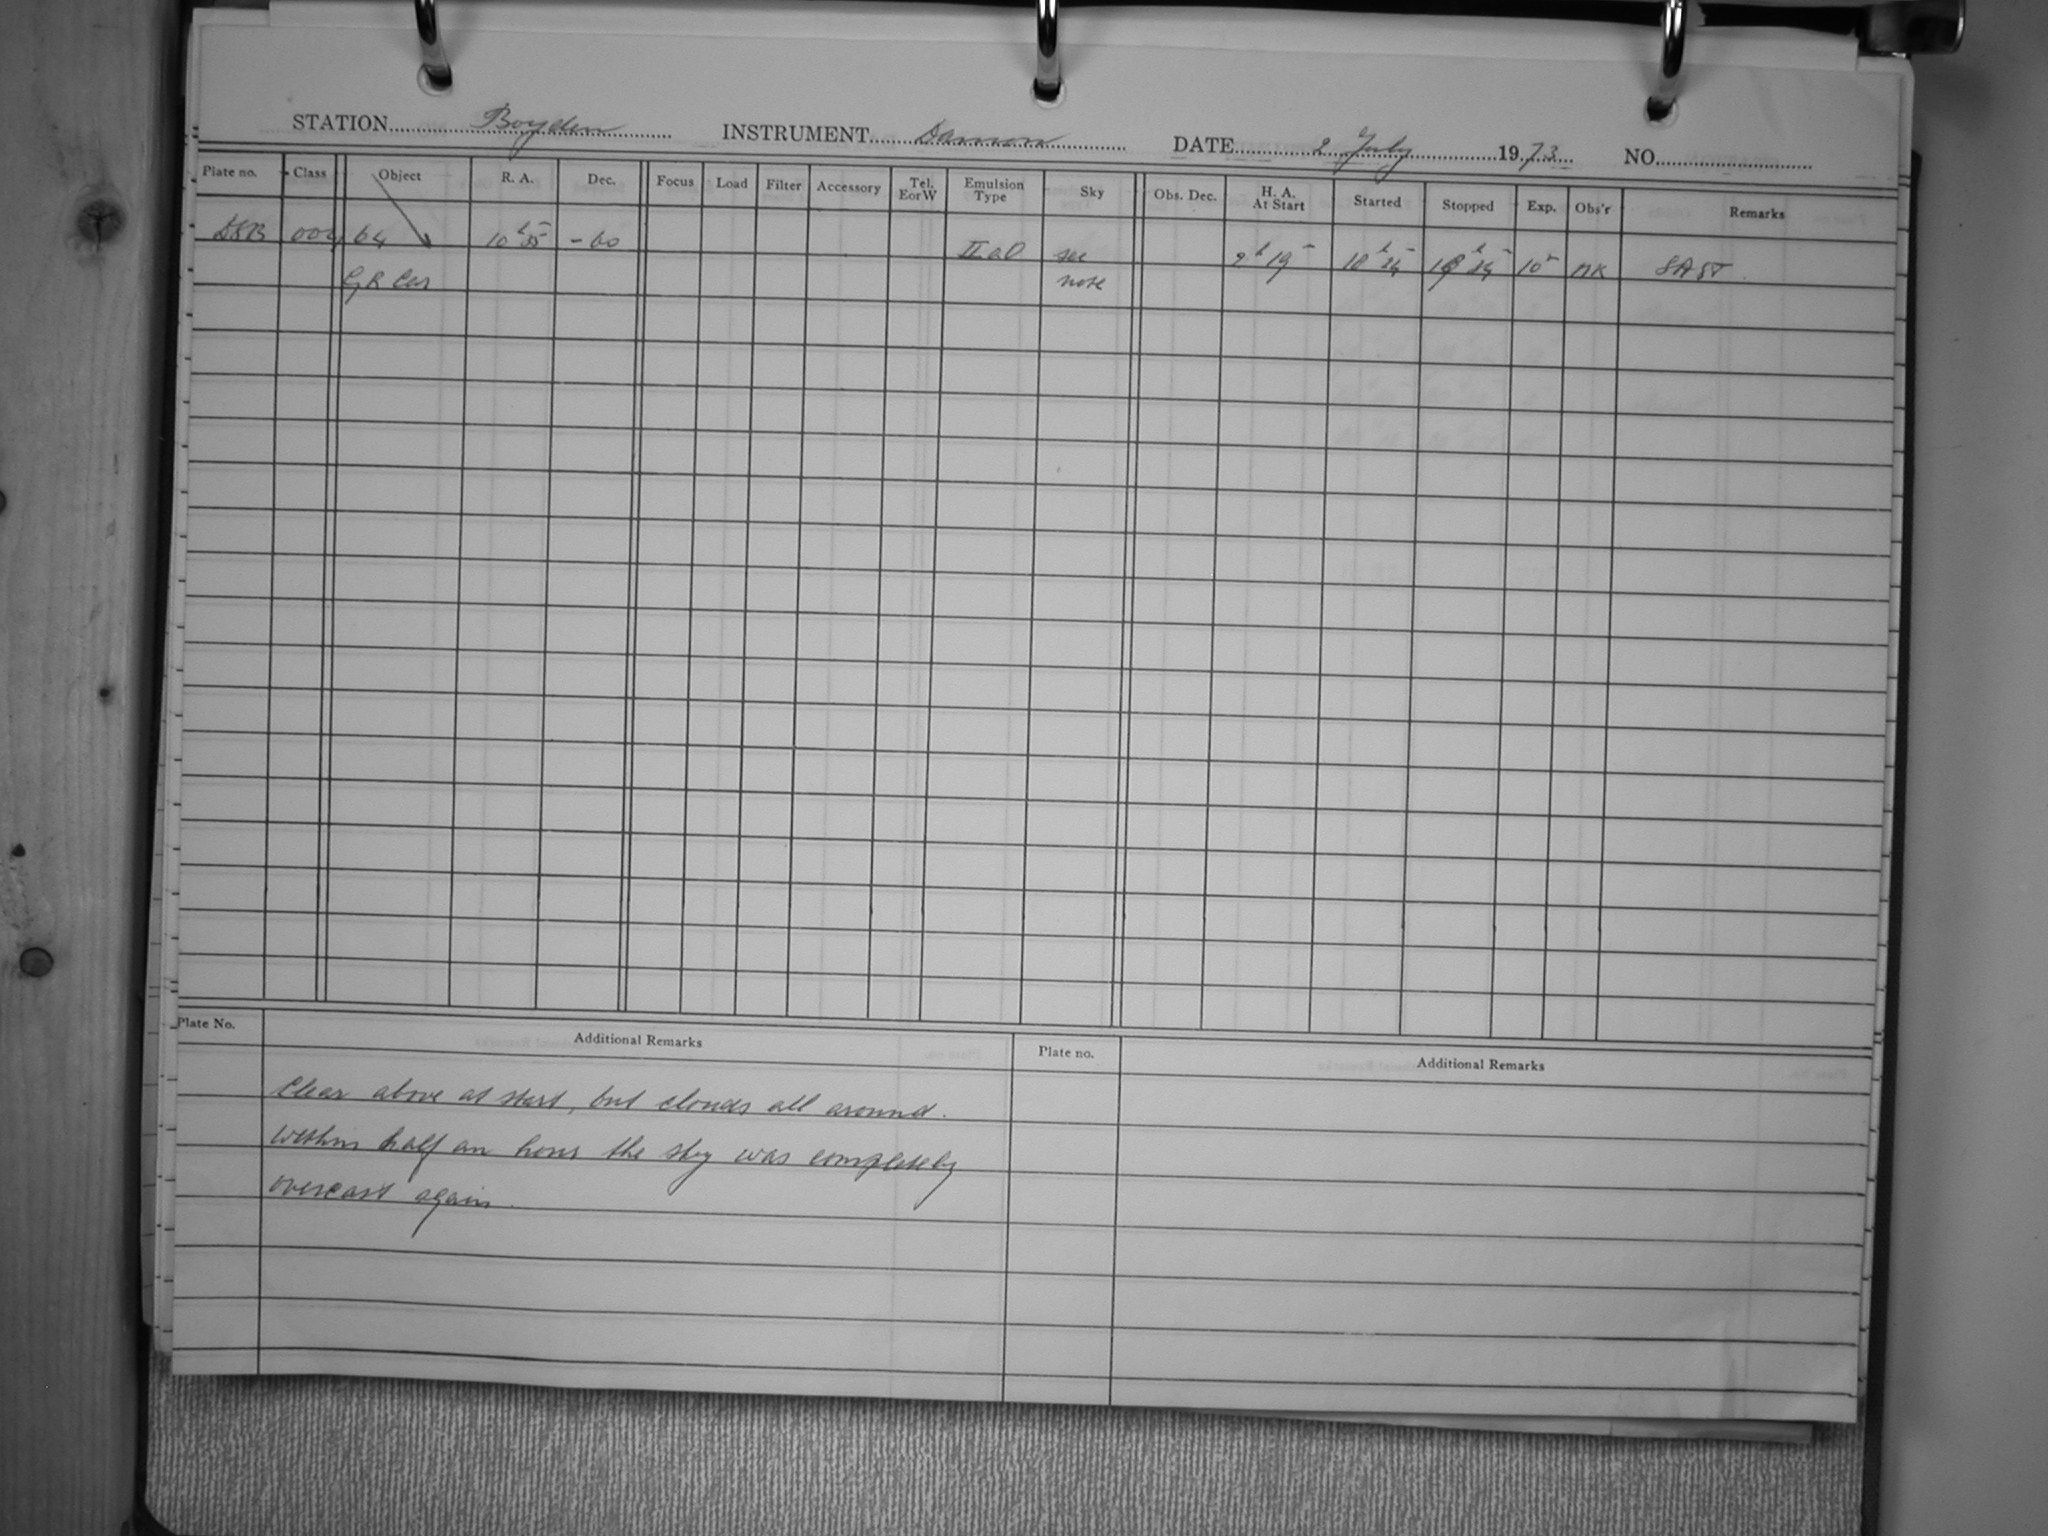 STATION Boyden INSTRUMENT Damon DATE 2 July 1973 NO.
Plate no. Class Object R. A. Dec. Focus Load Filter Accessory Tel. EorW Emulsion Type Sky Obs. Dec. H. A. At Start Started Stopped Exp. Obs'r Remarks
DSB 004 64 10 h 35 m -60 IIaO see 2 h 19 m 10 MK SAST
GR Car note
Plate No. Additional Remarks Plate no. Additional Remarks
Clear above at start, but clouds all around.
Within half an hour the sky was completely
overcast again.